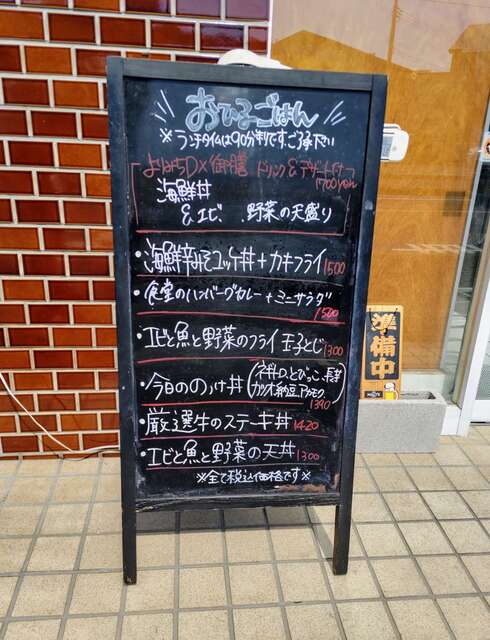 おひるごはん
※ランチタイムは90分制です。ご了承下さい
よりみちDX御膳 ドリンク&デザート付
1700yen
海鮮丼
&エビ、野菜の天盛り
・海鮮辛みそユッケ丼+カキフライ1500
・食堂のハンバーグカレー+ミニサラダ
1500
・エビと魚と野菜のフライ玉子とじ1300
・今日ののっけ丼
とびっこ、長芋
カツオ、納豆、
1390
・厳選牛のステーキ丼1420
・エビと魚と野菜の天丼1300
※全て税込価格です※
準備中